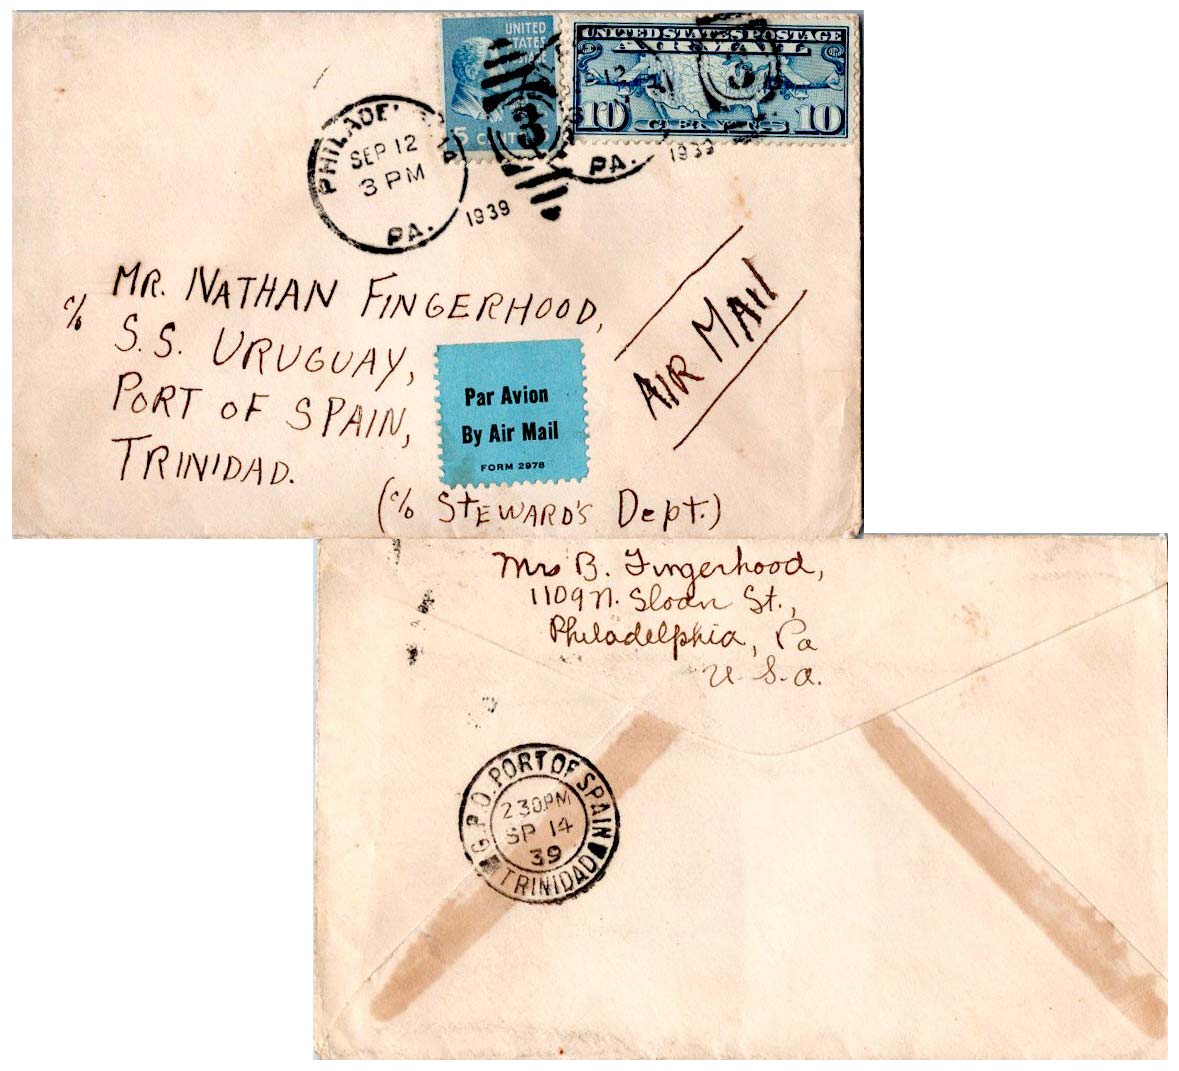 UNITED
STATES
POSTAGE
5 CENTS 5
UNITED STATES POSTAGE
AIR MAIL
10 CENTS 10
PHILADELPHIA
SEP 12
3 PM
PA.
1939
3
12
PA.
1939
3
c/o MR. NATHAN FINGERHOOD,
S.S. URUGUAY,
PORT OF SPAIN,
TRINIDAD.
(c/o STEWARD'S Dept.)
AIR MAIL
Par Avion
By Air Mail
FORM 2978
Mrs B. Fingerhood,
1109 N. Sloan St.,
Philadelphia, Pa
U.S.A.
G.P.O. PORT OF SPAIN
2 30PM
SP 14
39
TRINIDAD